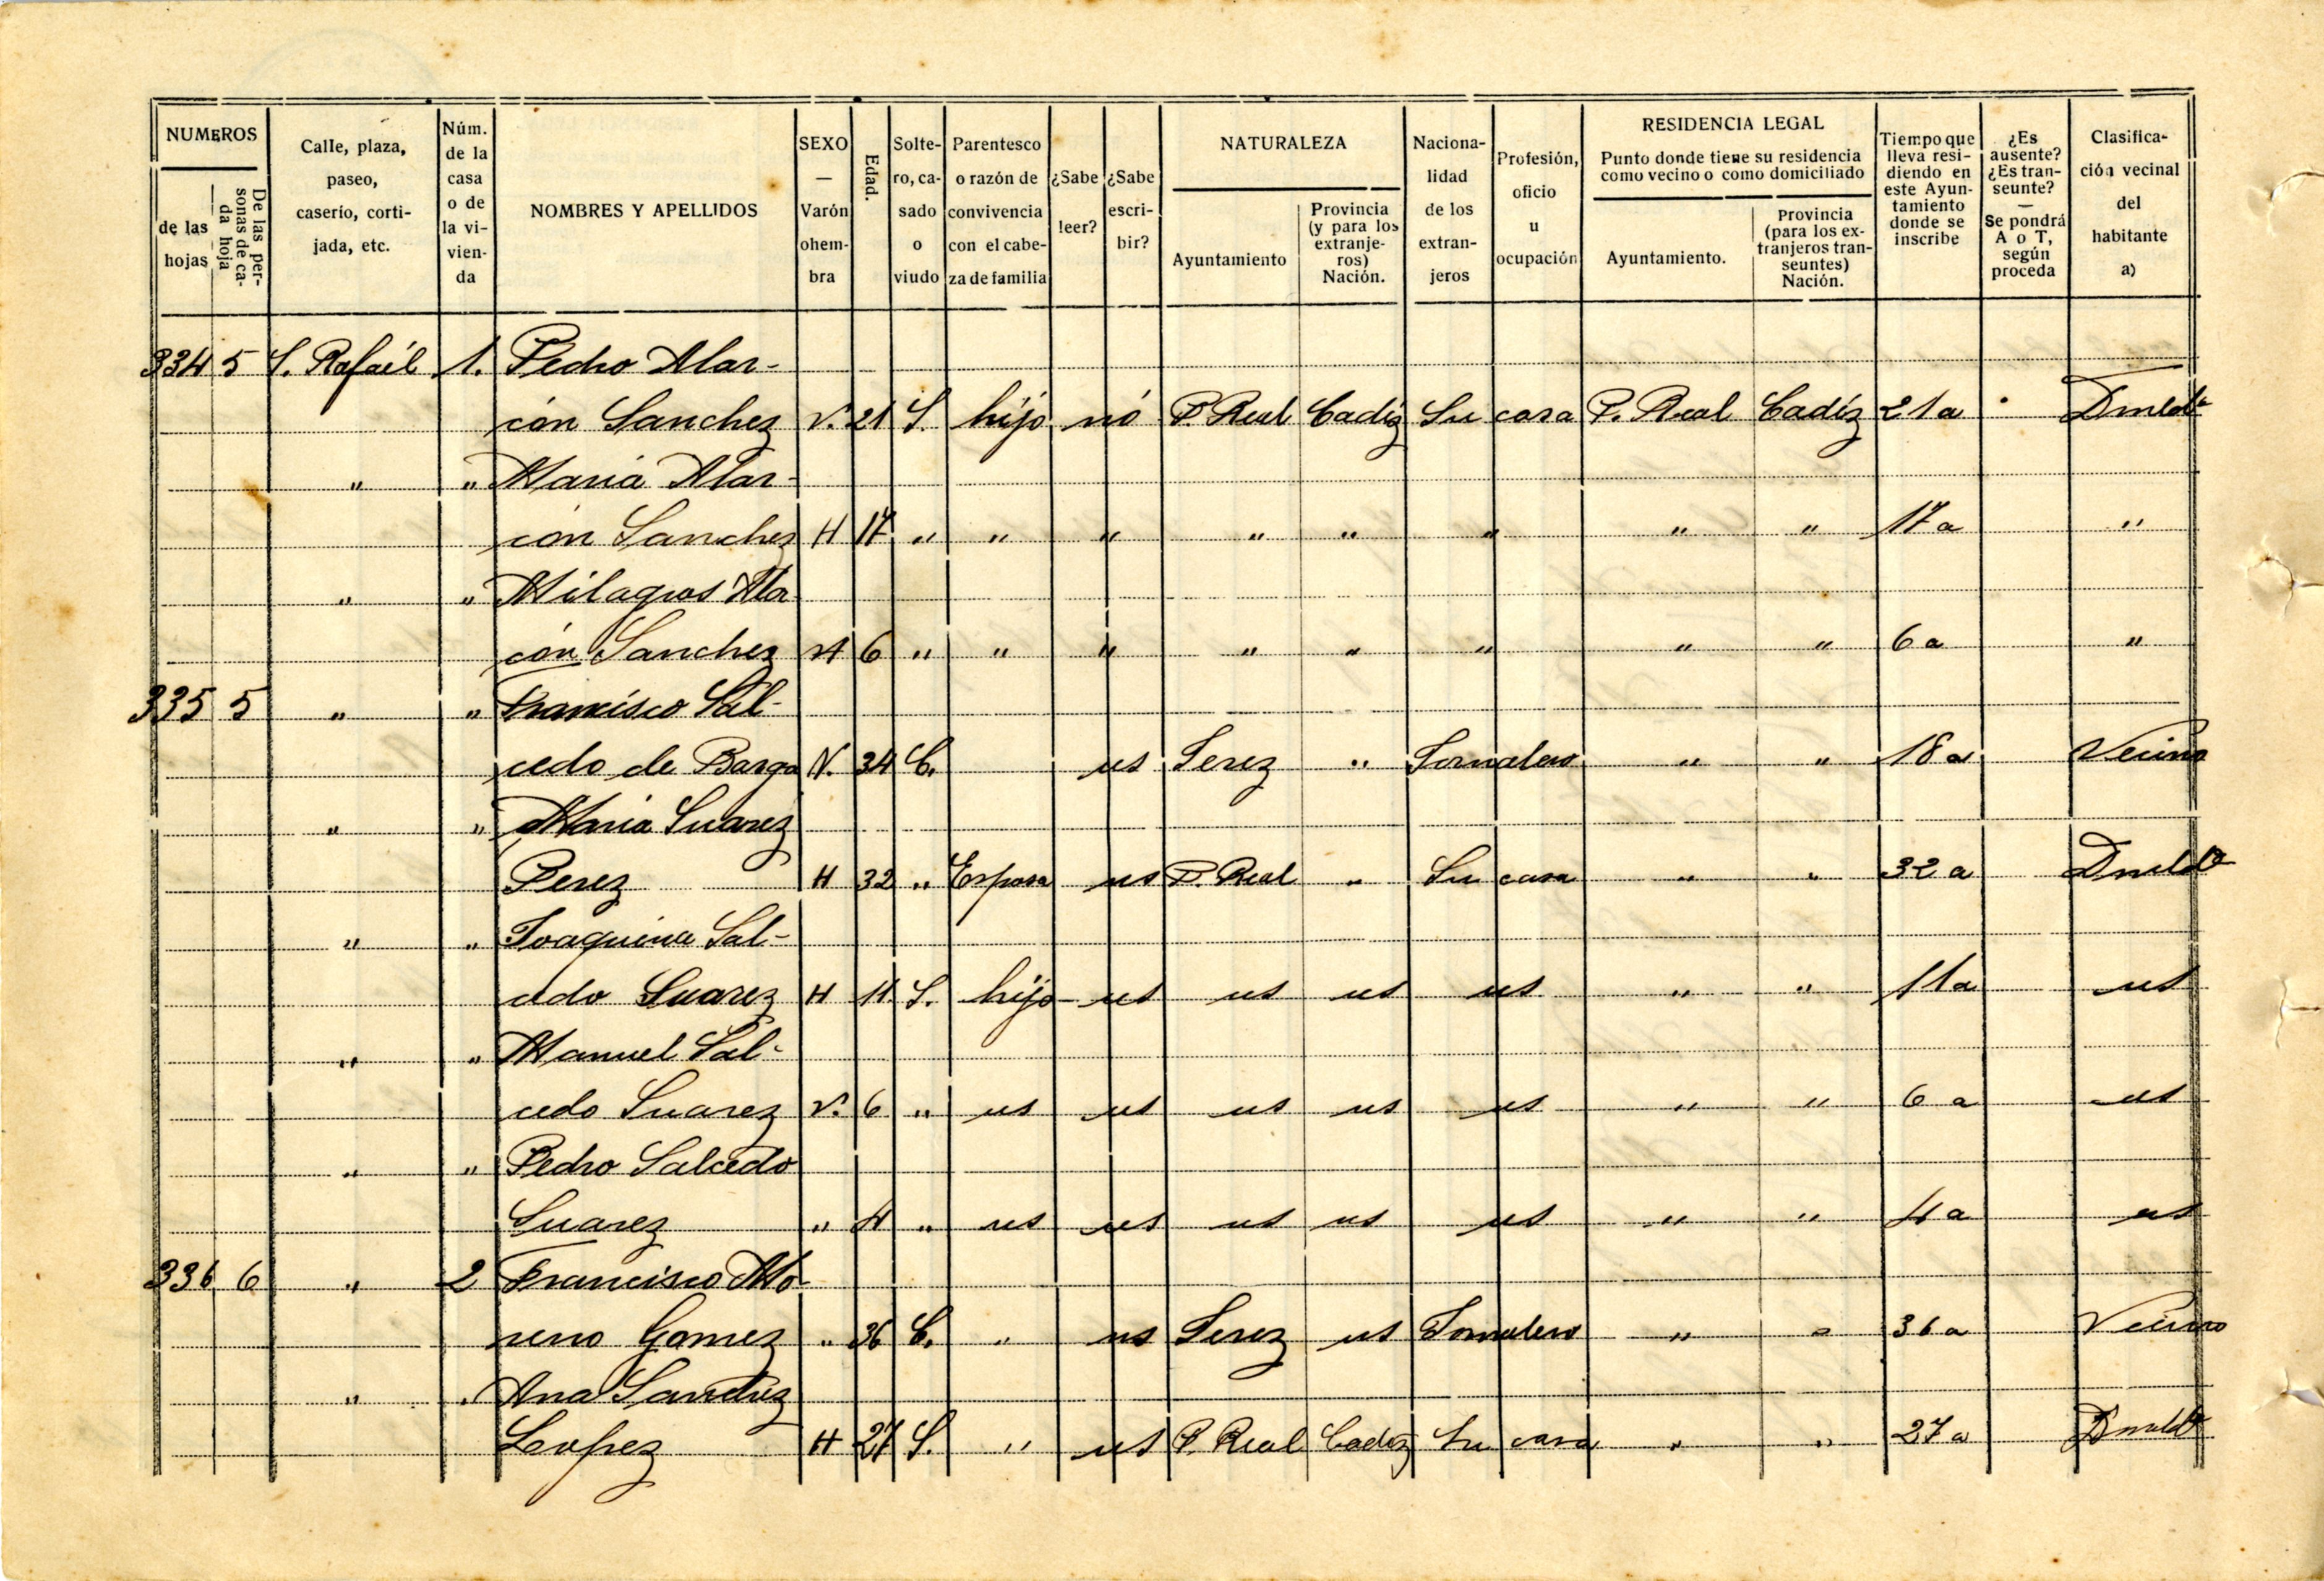 NUMEROS
de las hojas
De las personas de cada hoja
Calle, plaza, paseo, caserío, cortijada, etc.
Núm. de la casa o de la vivienda
NOMBRES Y APELLIDOS
SEXO — Varón o hembra
Edad.
Soltero, casado o viudo
Parentesco o razón de convivencia con el cabeza de familia
¿Sabe leer?
¿Sabe escribir?
NATURALEZA
Ayuntamiento
Provincia (y para los extranjeros) Nación.
Nacionalidad de los extranjeros
Profesión, oficio u ocupación
RESIDENCIA LEGAL
Punto donde tiene su residencia como vecino o como domiciliado
Ayuntamiento.
Provincia (para los extranjeros transeuntes) Nación.
Tiempo que lleva residiendo en este Ayuntamiento donde se inscribe
¿Es ausente? ¿Es transeunte? — Se pondrá A o T, según proceda
Clasificación vecinal del habitante a)
334 5 S. Rafaél 1. Pedro Alar-
cón Sanchez V. 21 S. hijo nó P. Real Cadiz Su casa P. Real Cadíz 21 a Dmcldo
" " Maria Alar-
cón Sanchez H 17 " " " " " " " " 17 a "
" " Milagros Alar
cón Sanchez H 6 " " " " " " " " 6 a "
335 5 " " Francisco Sal-
cedo de Barga V. 34 C. us Jerez " Jornalero " " 18 a Vecino
" " Maria Suarez
Perez H 32 " Esposa us P. Real " Su casa " " 32 a Dmcldo
" " Joaquina Sal-
cedo Suarez H 11 S. hijo us us us us " " 11 a us
" " Manuel Sal-
cedo Suarez V. 6 " us us us us us " " 6 a us
" " Pedro Salcedo
Suarez " 4 " us us us us us " " 4 a us
336 6 " 2 Francisco Mo-
reno Gomez " 36 C. " us Jerez us Jornalero " " 36 a Vecino
" " Ana Sanchez
Lopez H 27 S. " us P. Real Cadiz Su casa " " 27 a Dmcldo